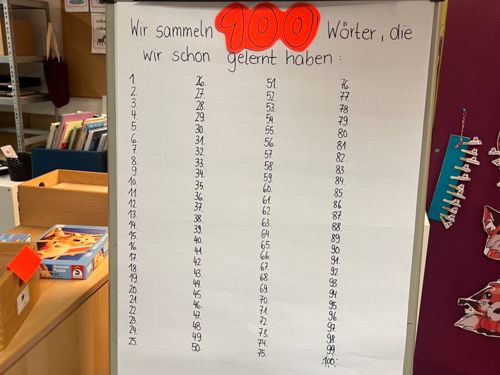 Wir sammeln 100 Wörter, die
wir schon gelernt haben:
1.
2.
3.
4.
5.
6.
7.
8.
9.
10.
11.
12.
13.
14.
15.
16.
17.
18.
19.
20.
21.
22.
23.
24.
25.
26.
27.
28.
29.
30.
31.
32.
33.
34.
35.
36.
37.
38.
39.
40.
41.
42.
43.
44.
45.
46.
47.
48.
49.
50.
51.
52.
53.
54.
55.
56.
57.
58.
59.
60.
61.
62.
63.
64.
65.
66.
67.
68.
69.
70.
71.
72.
73.
74.
75.
76.
77.
78.
79.
80.
81.
82.
83.
84.
85.
86.
87.
88.
89.
90.
91.
92.
93.
94.
95.
96.
97.
98.
99.
100:
Schmidt
Puzzle